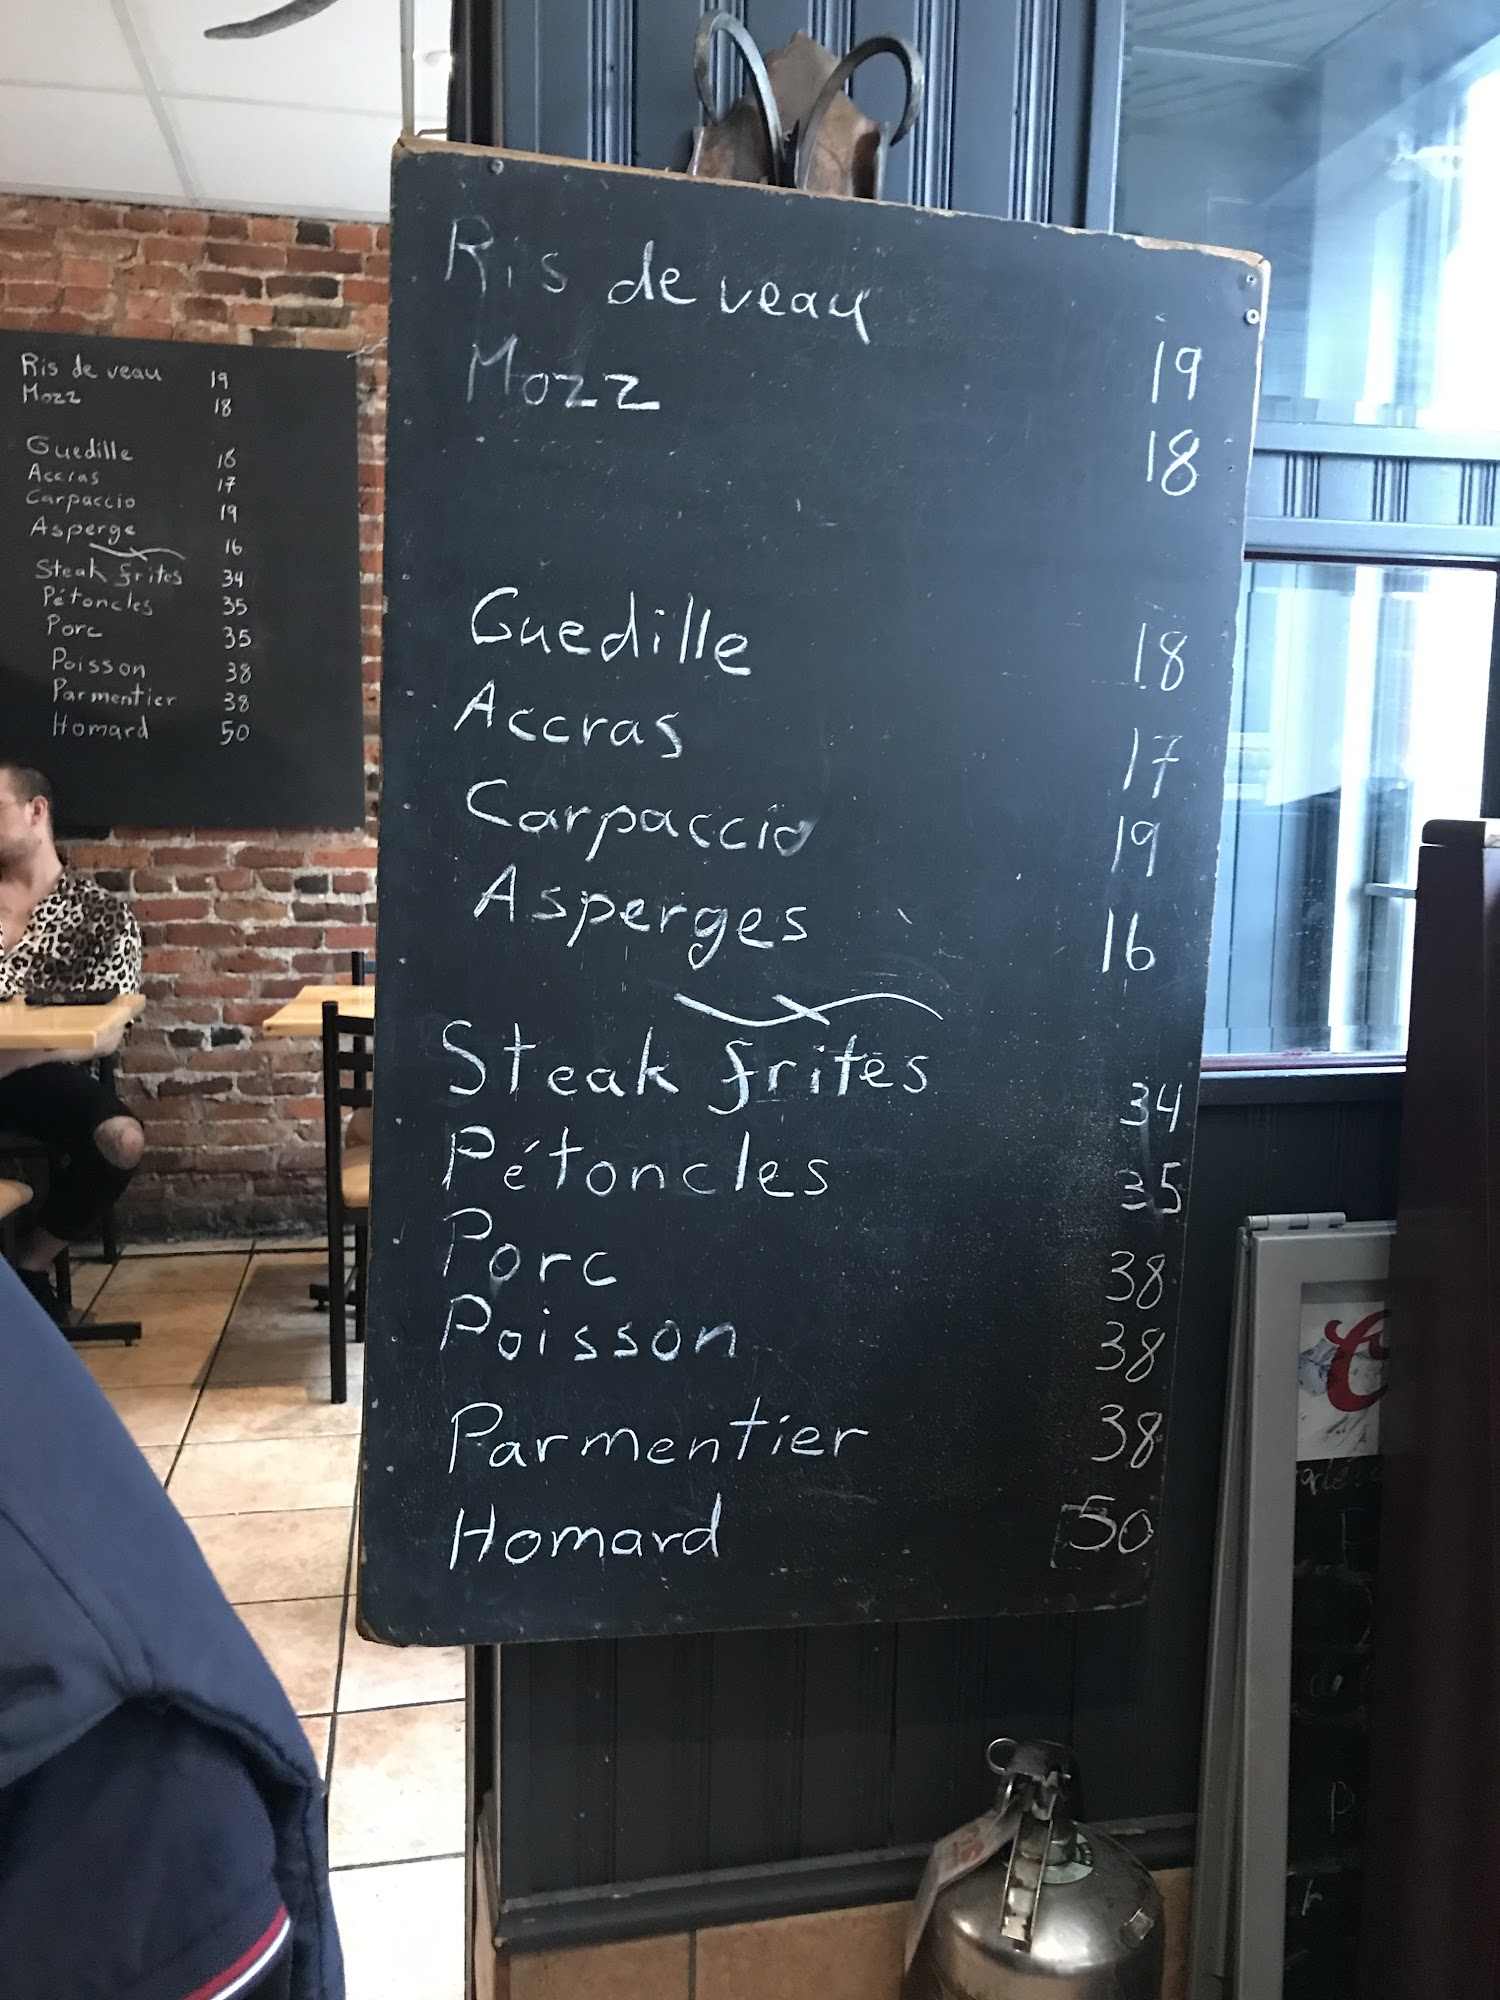 Ris de veau 19
Mozz 18
Guedille 18
Accras 17
Carpaccio 19
Asperge 16
Steak frites 34
Pétoncles 35
Porc 35
Poisson 38
Parmentier 38
Homard 50
Ris de veau 19
Mozz 18
Guedille 18
Accras 17
Carpaccio 19
Asperges 16
Steak frites 34
Pétoncles 35
Porc 38
Poisson 38
Parmentier 38
Homard 50